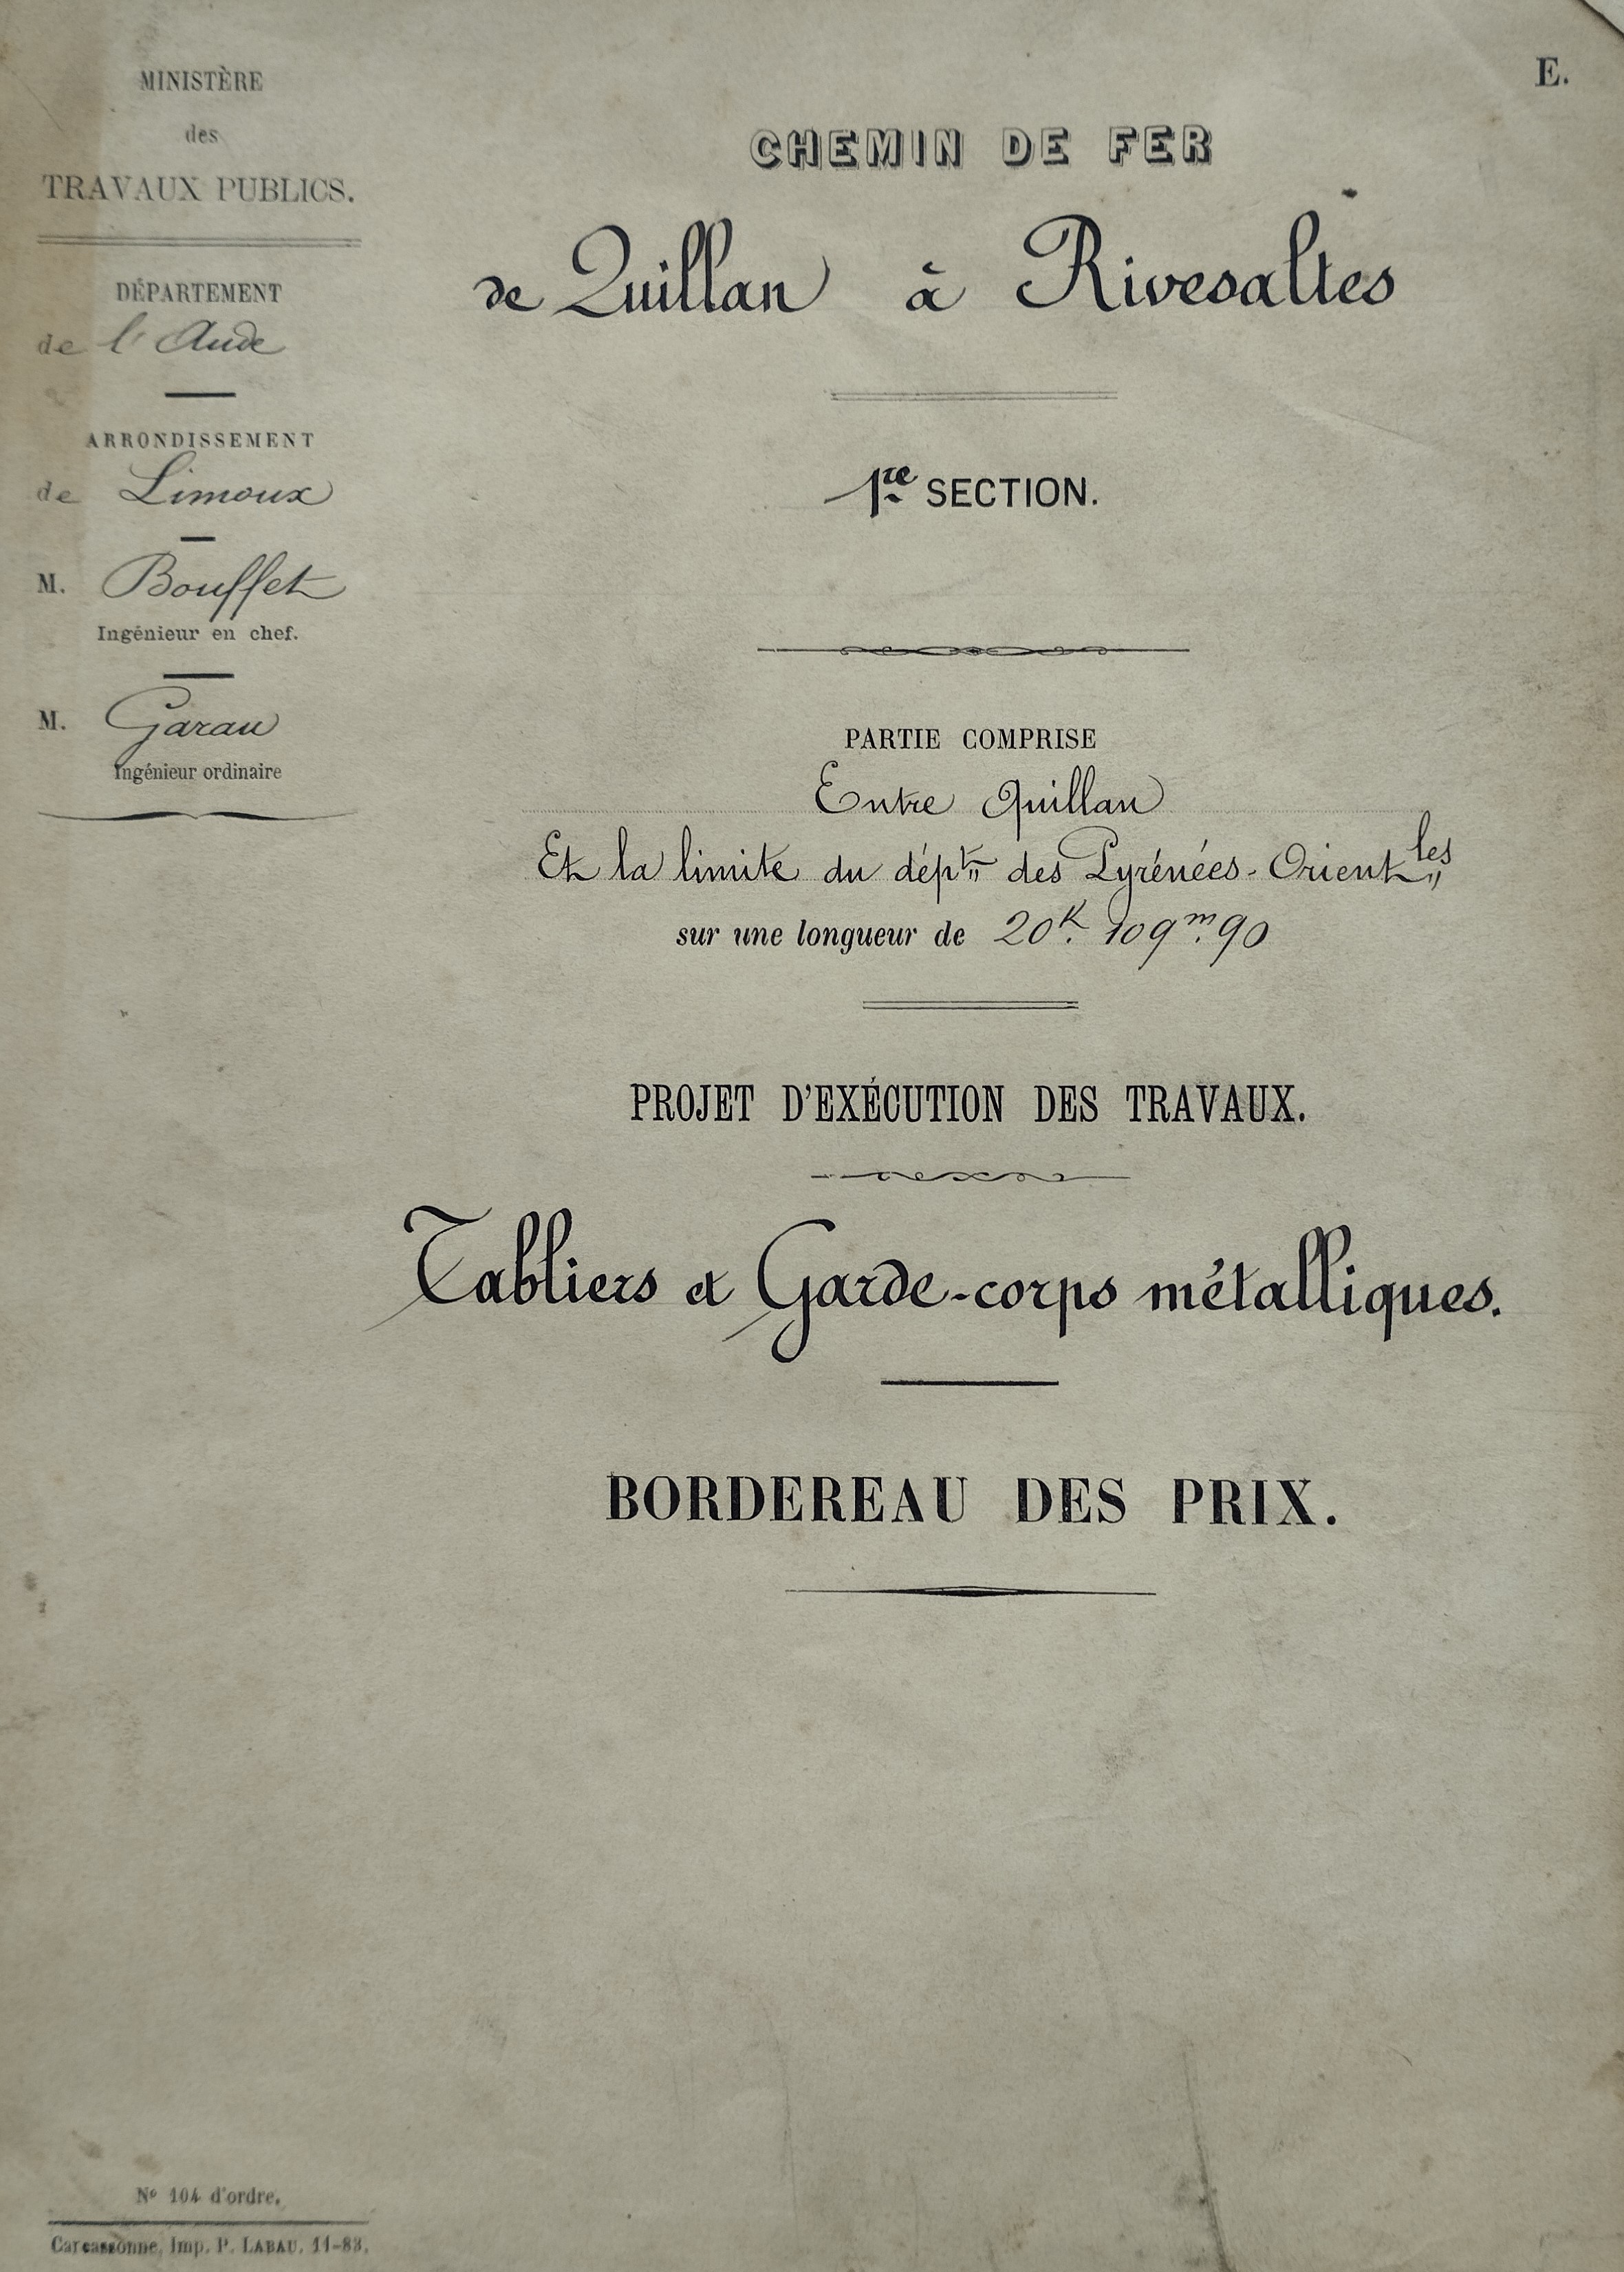 MINISTÈRE
des
TRAVAUX PUBLICS.
DÉPARTEMENT
de l'Aude
ARRONDISSEMENT
de Limoux
M. Bouffet
Ingénieur en chef.
M. Garau
Ingénieur ordinaire
E.
CHEMIN DE FER
de Quillan à Rivesaltes
1re SECTION.
PARTIE COMPRISE
Entre Quillan
Et la limite du dépt des Pyrénées-Orientles
sur une longueur de 20K. 109m.90
PROJET D'EXÉCUTION DES TRAVAUX.
Tabliers et Garde-corps métalliques.
BORDEREAU DES PRIX.
No 104 d'ordre.
Carcassonne, Imp. P. LABAU. 11-83.